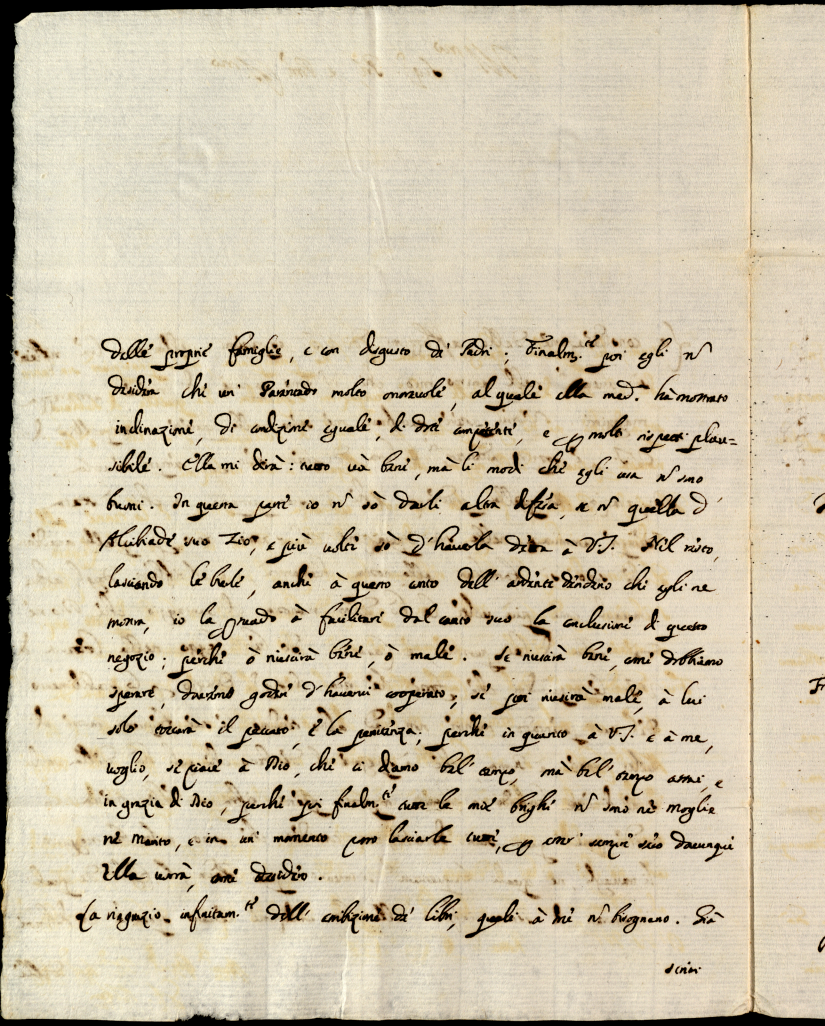 delle proprie famiglie, e con disgusto de' Padri; Finalm.te poi egli ñ
desidera che un' Parentado molto onorevole, al quale ella med.a hà mostrato
inclinazione, di condizione eguale, di dote competente, e p molti rispetti plau=
sibile. Ella mi dirà: tutto và bene, mà li modi che egli usa ñ sono
buoni. In questa parte io ñ sò darli altra difesa, se ñ quella d'
Alcibiade suo Zio, e più volte sò d'haverla detta à V.S. Nel resto,
lasciando le burle, anche à questo conto dell' ardente desiderio che egli ne
mostra, io la persuado à facilitare dal canto suo la conclusione di questo
negozio; perche ò riuscirà bene, ò male. Se riuscirà bene, come dobbiamo
sperare, doveremo godere d'havervi cooperato; se poi riuscirà male, à lui
solo toccarà il peccato, e la penitenza; perche in quanto à V.S. e à me,
voglio, se piace à Dio, che ci diamo bel tempo, mà bel tempo assai, e
in grazia di Dio, perche poi finalm.te tutte le mie brighe ñ sono nè moglie
nè marito, e in un' momento posso lasciarle tutte, p esser sempre seco dovunque
Ella vorrà, come desidero.
La ringrazio infinitam.te dell' esibizione de' libri, quali à me ñ bisognano. Già
scrissi